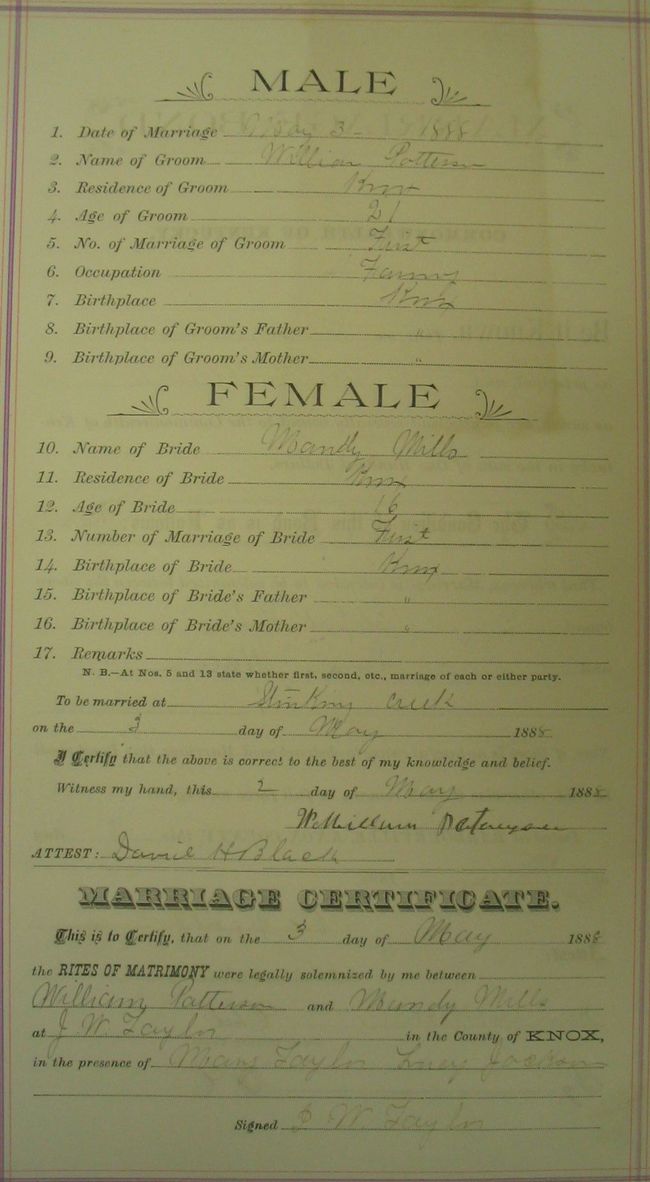 MALE
1. Date of Marriage May 3 - 1888
2. Name of Groom William Patterson
3. Residence of Groom Knox
4. Age of Groom 21
5. No. of Marriage of Groom First
6. Occupation Farmer
7. Birthplace Knox
8. Birthplace of Groom's Father "
9. Birthplace of Groom's Mother "
FEMALE
10. Name of Bride Mandy Mills
11. Residence of Bride Knox
12. Age of Bride 16
13. Number of Marriage of Bride First
14. Birthplace of Bride Knox
15. Birthplace of Bride's Father "
16. Birthplace of Bride's Mother "
17. Remarks
N. B.—At Nos. 5 and 13 state whether first, second, etc., marriage of each or either party.
To be married at Stinking Creek
on the 3 day of May 1888
I Certify that the above is correct to the best of my knowledge and belief.
Witness my hand, this 2 day of May 1888
ATTEST: David H Black
MARRIAGE CERTIFICATE.
This is to Certify, that on the 3 day of May 1888
the RITES OF MATRIMONY were legally solemnized by me between
William Patterson and Mandy Mills
at J. W. Taylor in the County of KNOX,
in the presence of Mary Taylor Lucy Jackson
Signed J W Taylor